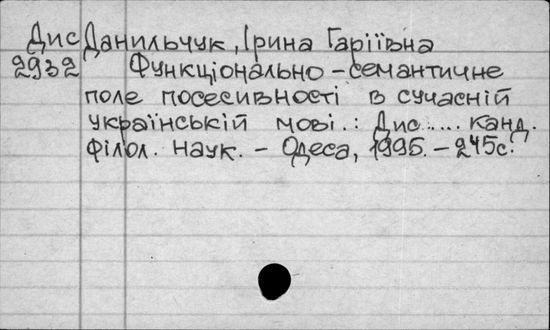 Дис Данильчук, Ірина Гаріївна
2932 Функціонально-семантичне
поле посесивності в сучасній
українській мові.: Дис.... канд.
філол. наук. - Одеса, 1995. - 245с.